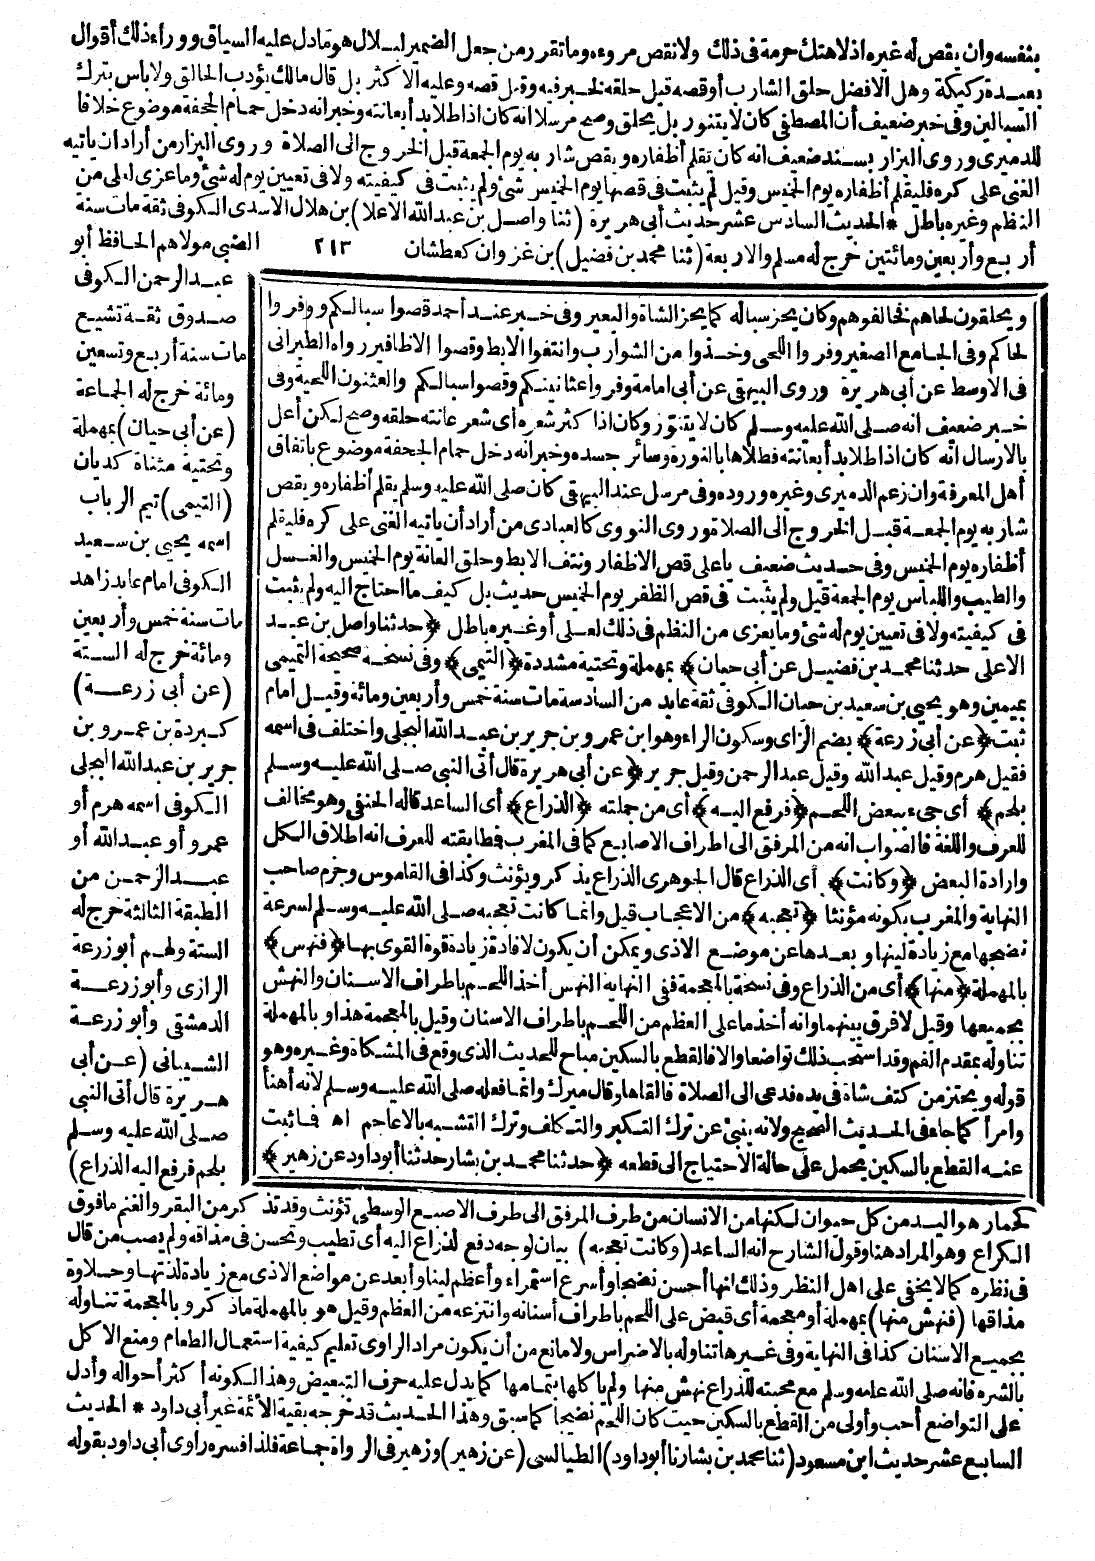 بنفسه وان يقص له غيره اذ لا هتك حرمة فى ذلك ولا نقص مروءه وما تقرر من جعل الضمير لبلال هو مادل عليه السياق ووراء ذلك أقوال
بعيدة ركيكة وهل الافضل حلق الشارب أو قصه قيل حلقه لخبر فيه وقيل قصه وعليه الاكثر بل قال مالك يؤدب الحالق ولا بأس بترك
السبالين وفى خبر ضعيف أن المصطفى كان لا يتنور بل يحلق وصح مرسلا انه كان اذا طلا بدأ بعانته وخبر انه دخل حمام الجحفة موضوع خلافا
للدميرى وروى البزار بسند ضعيف انه كان تقلم أظفاره ويقص شاربه يوم الجمعة قبل الخروج الى الصلاة وروى البزار من أراد ان يأتيه
الغنى على كره فليقلم أظفاره يوم الخميس وقيل لم يثبت فى قصها يوم الخميس شئ ولم يثبت فى كيفيته ولا فى تعيين يوم له شئ وما عزى لعلى من
النظم وغيره باطل * الحديث السادس عشر حديث أبى هريرة (ثنا واصل بن عبد الله الاعلا) بن هلال الاسدى الكوفى ثقة مات سنة
أربع وأربعين ومائتين خرج له مسلم والاربعة (ثنا محمد بن فضيل) بن غزوان كعطشان ٢١٣ الضبى مولاهم الحافظ أبو
عبد الرحمن الكوفى
صدوق ثقة تشيع
مات سنة أربع وتسعين
ومائة خرج له الجماعة
(عن أبى حيان) بمهملة
وتحتية مثناة كديان
(التيمى) تيم الرباب
اسمه يحيى بن سعيد
الكوفى امام عابد زاهد
مات سنة خمس وأربعين
ومائة خرج له الستة
(عن أبى زرعة)
كبردة بن عمرو بن
جرير بن عبد الله البجلى
الكوفى اسمه هرم أو
عمرو أو عبد الله أو
عبد الرحمن من
الطبقة الثالثة خرج له
الستة ولهم أبو زرعة
الرازى وأبو زرعة
الدمشقى وأبو زرعة
الشيبانى (عن أبى
هريرة قال أتى النبى
صلى الله عليه وسلم
بلحم فرفع اليه الذراع)
ويحلقون لحاهم فخالفوهم وكان يجز سباله كما يجز الشاة والبعير وفى خبر عند أحمد قصوا سبالكم ووفروا
لحاكم وفى الجامع الصغير وفروا اللحى وخذوا من الشوارب وانتفوا الابط وقصوا الاظافير رواه الطبرانى
فى الاوسط عن أبى هريرة وروى البيهقى عن أبى امامة وفروا عثانينكم وقصوا سبالكم والعثنون اللحية وفى
خبر ضعيف انه صلى الله عليه وسلم كان لا يتنور وكان اذا كثر شعره أى شعر عانته حلقه وصح لكن أعل
بالارسال انه كان اذا طلا بدأ بعانته فطلاها بالنورة وسائر جسده وخبر انه دخل حمام الجحفة موضوع باتفاق
أهل المعرفة وان زعم الدميرى وغيره وروده وفى مرسل عند البيهقى كان صلى الله عليه وسلم يقلم أظفاره ويقص
شاربه يوم الجمعة قبل الخروج الى الصلاة وروى النووى كالعبادى من أراد أن يأتيه الغنى على كره فليقلم
أظفاره يوم الخميس وفى حديث ضعيف يا على قص الاظفار ونتف الابط وحلق العانة يوم الخميس والغسل
والطيب واللباس يوم الجمعة قيل ولم يثبت فى قص الظفر يوم الخميس حديث بل كيف ما احتاج اليه ولم يثبت
فى كيفيته ولا فى تعيين يوم له شئ وما يعزى من النظم فى ذلك لعلى أو غيره باطل ﴿حدثنا واصل بن عبد
الاعلى حدثنا محمد بن فضيل عن أبى حيان﴾ بمهملة وتحتية مشددة ﴿التيمى﴾ وفى نسخة صحيحة التميمى
بميمين وهو يحيى بن سعيد بن حيان الكوفى ثقة عابد من السادسة مات سنة خمس وأربعين ومائة وقيل امام
ثبت ﴿عن أبى زرعة﴾ بضم الزاى وسكون الراء وهو ابن عمرو بن جرير بن عبد الله البجلى واختلف فى اسمه
فقيل هرم وقيل عبد الله وقيل عبد الرحمن وقيل جرير ﴿عن أبى هريرة قال أتى النبى صلى الله عليه وسلم
بلحم﴾ أى جىء ببعض اللحم ﴿فرفع اليه﴾ أى من جملته ﴿الذراع﴾ أى الساعد قاله الحنفى وهو مخالف
للعرف واللغة فالصواب انه من المرفق الى اطراف الاصابع كما فى المغرب فطابقته للعرف انه اطلاق الكل
وارادة البعض ﴿وكانت﴾ أى الذراع قال الجوهرى الذراع يذكر ويؤنث وكذا فى القاموس وجزم صاحب
النهاية والمغرب بكونه مؤنثا ﴿تعجبه﴾ من الاعجاب قيل وانما كانت تعجبه صلى الله عليه وسلم لسرعة
نضجها مع زيادة لينها وبعدها عن موضع الاذى ويمكن أن يكون لافادة زيادة قوة القوى بها ﴿فنهس﴾
بالمهملة ﴿منها﴾ أى من الذراع وفى نسخة بالمعجمة ففى النهاية النهس أخذ اللحم باطراف الاسنان والنهش
بجميعها وقيل لا فرق بينهما وانه أخذ ما على العظم من اللحم باطراف الاسنان وقيل بالمعجمة هذا وبالمهملة
تناوله بمقدم الفم وقد استحب ذلك تواضعا والا فالقطع بالسكين مباح للحديث الذى وقع فى المشكاة وغيره وهو
قوله ويحتز من كتف شاة فى يده فدعى الى الصلاة فالقاها وقال ميرك وانما فعله صلى الله عليه وسلم لانه أهنأ
وامرأ كما جاء فى الحديث الصحيح ولانه ينبئ عن ترك التكبر والتكلف وترك التشبه بالاعاجم اه فما ثبت
عنه القطع بالسكين يحمل على حالة الاحتياج الى قطعه ﴿حدثنا محمد بن بشار حدثنا أبو داود عن زهير﴾
كحمار هو اليد من كل حيوان لكنها من الانسان من طرف المرفق الى طرف الاصبع الوسطى تؤنث وقد تذكر من البقر والغنم ما فوق
الكراع وهو المراد هنا وقول الشارح انه الساعد (وكانت تعجبه) بيان لوجه دفع لذراع اليه أى تطيب وتحسن فى مذاقه ولم يصب من قال
فى نظره كما لا يخفى على اهل النظر وذلك انها أحسن نضجا وأسرع استمراء وأعظم لينا وأبعد عن مواضع الاذى مع زيادة لذتها وحلاوة
مذاقها (فنهش منها) بمهملة أو معجمة أى قبض على اللحم باطراف أسنانه وانتزعه من العظم وقيل هو بالمهملة ماذكر وبالمعجمة تناوله
بجميع الاسنان كذا فى النهاية وفى غيرها تناوله بالاضراس ولا مانع من أن يكون مراد الراوى تعليم كيفية استعمال الطعام ومنع الاكل
بالشره فانه صلى الله عليه وسلم مع محبته للذراع نهش منها ولم يأكلها بتمامها كما يدل عليه حرف التبعيض وهذا لكونه أكثر أحواله وأدل
على التواضع أحب وأولى من القطع بالسكين حيث كان اللحم نضيجا كما سبق وهذا الحديث قد خرجه بقية الأئمة غير أبى داود * الحديث
السابع عشر حديث ابن مسعود (ثنا محمد بن بشار نا أبو داود) الطيالسى (عن زهير) وزهير فى الرواة جماعة فلذا فسره راوى أبى داود بقوله